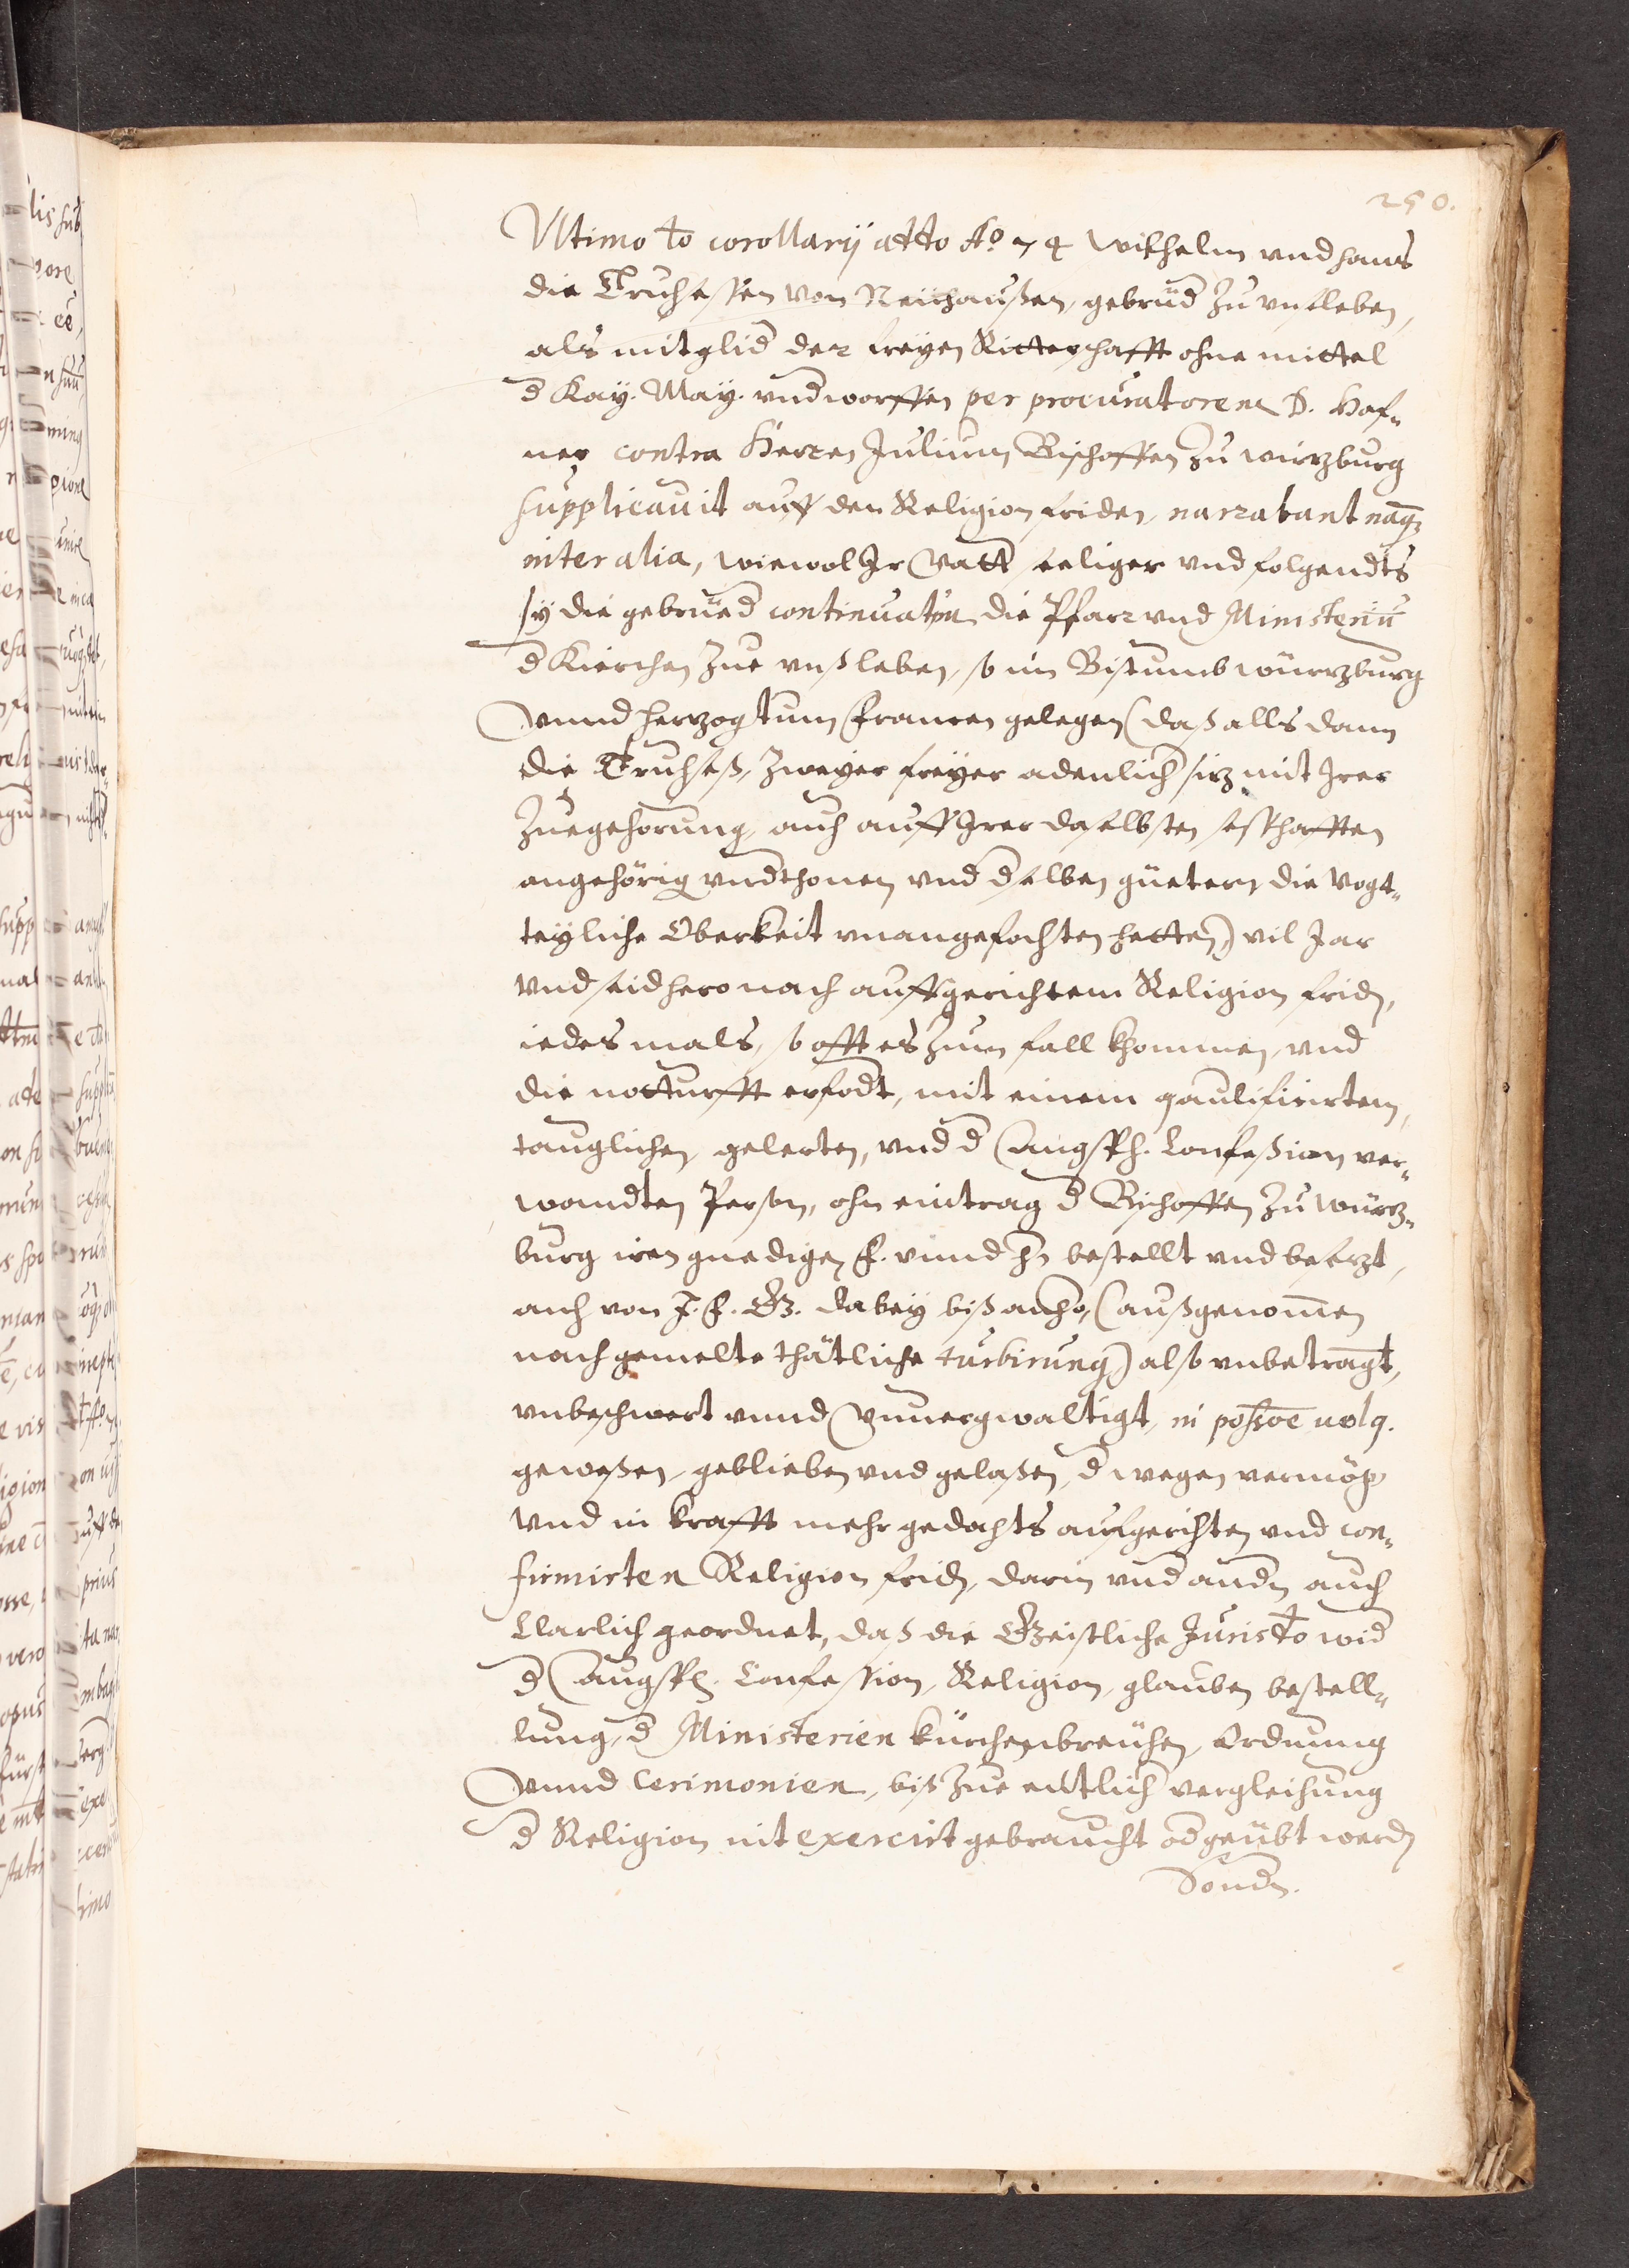 250.
Vltimo to corollarÿ atto Ao 74 Wilhelm vnd hans
die Truchsessen von Neuhaußen, gebrud zu vnsleben,
als mitglid der freyen Ritterschafft ohne mittel
d Kay. May. vndworffen per procuratorem D. Haf„
ner contra Herren Julium Bischoffen zu wirzburg
supplicauit auff den Religion friden, narrabant nāq₃
inter alia, wiewol Jr Vatt seeliger vnd folgendts
sÿ die gebrued continuatim die Pfarr vnd Ministeriū
d Kirchen zue vnßleben, so im Bistumb würzburg
vnnd herzogtum Francken gelegen (daß alls dann
die Truchseß, zweyer freyer adenlich siz mit Jrer
zuegehorung, auch auff Jrer daselbsten seßhafften
angehörig vndthonen vnd dselben güetern die vogt„
teyliche Oberkeit vnangefochten hetten) vil Jar
vnd seidhero nach auffgerichtem Religion frid,
iedes mals, so offt es zum fall khommen, vnd
die notturfft erfodt, mit einem qaulificirten,
tauglichen, gelerten, vnd d Augsp. Confeßion ver„
wandten Person, ohn eintrag d Bischoffen zu würz„
burg iren gnedigen f. vnnd hn bestellt vnd besezt,
auch von J. F. G. dabey biß anhero, (außgenommen
nachgemelte thätliche turbirung) also vnbetrangt,
vnbeschwert vnnd vnuergwaltigt, in poßōe uelq.
gewesen, geblieben vnd gelaßen, d wegen vermög
vnd in krafft mehr gedachts aufgerichten vnd con„
firmirten Religion frid, darin vnd andn auch
Clarlich geordnet, daß die Geistliche Jurisdto wid
d Augsp. Confession, Religion, glauben bestell„
lung, d Ministerien kürchenbreuchen, ordnung
vnnd Cerimonien, biß zue entlich vergleichung
d Religion nit exercirt gebraucht od geübt werd
Sondn.